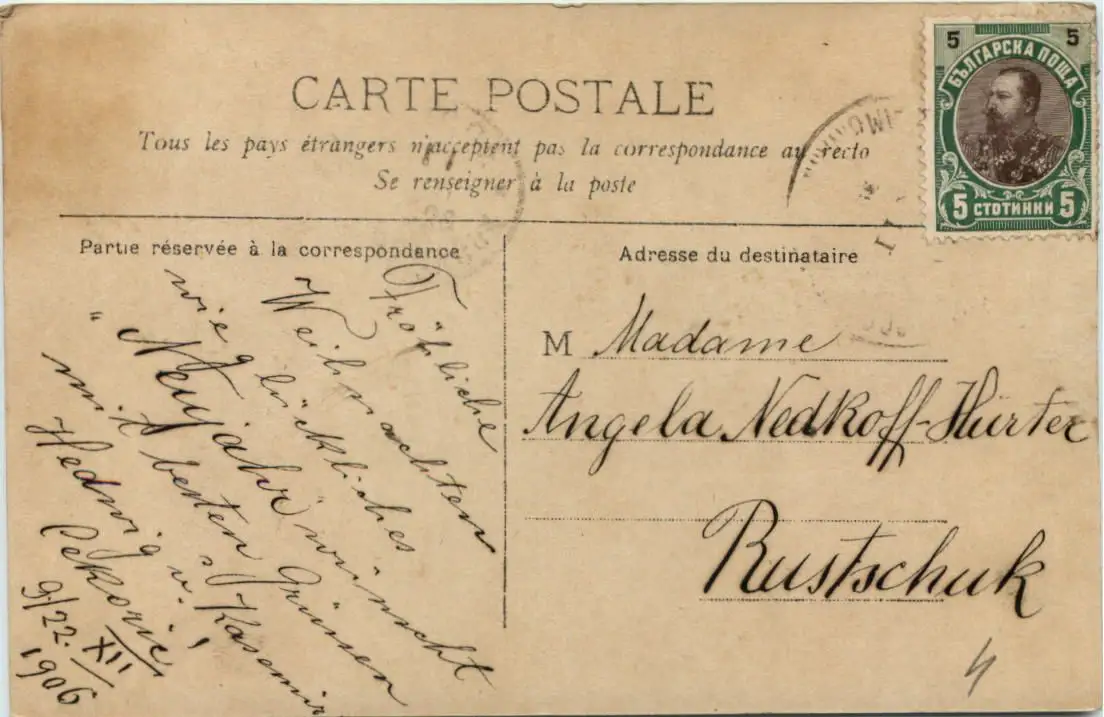 CARTE POSTALE
Tous les pays étrangers n'acceptent pas la correspondance au recto
Se renseigner à la poste
5 5
БЪЛГАРСКА ПОЩА
5 СТОТИНКИ 5
Partie réservée à la correspondance
Fröhliche
Weihnachten
wie glückliches
"Neujahr" wünscht
mit besten Grüssen
Hedwig u. Kasimir
9/22. XII
1906
Adresse du destinataire
M Madame
Angela Nedkoff-Hürter
Rustschuk
4